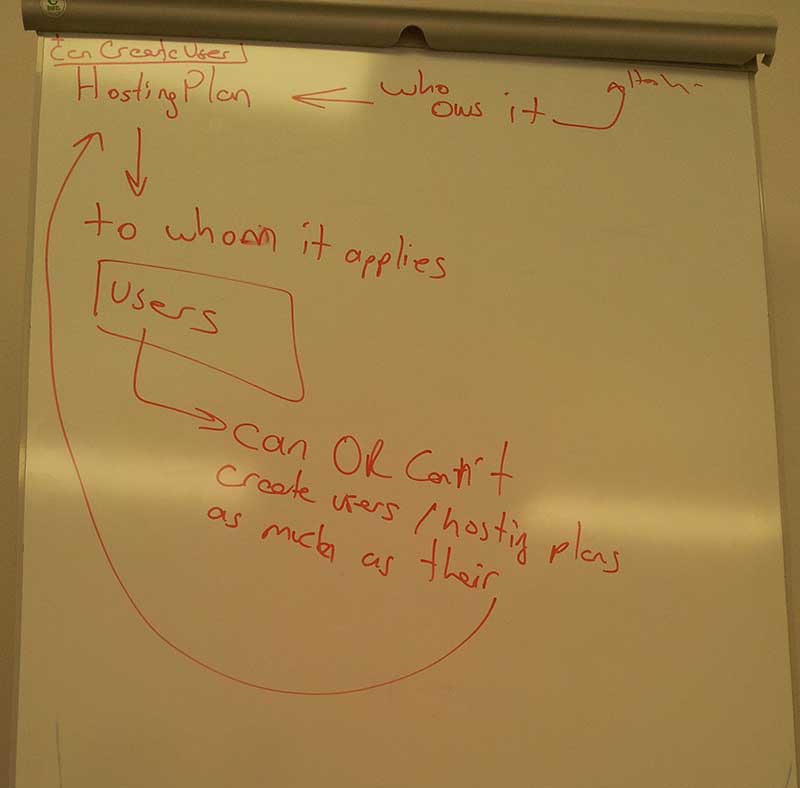 + Can Create User
HostingPlan
who
ows it
to whom it applies
Users
can OR Can't
create users / hostig plans
as much as their